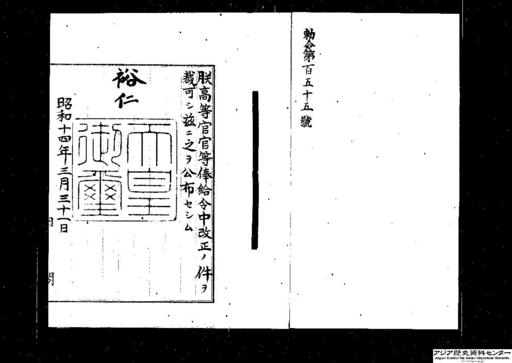 勅令第百五十五號
朕高等官官等俸給令中改正ノ件ヲ
裁可シ茲ニ之ヲ公布セシム
裕仁
天皇
御璽
昭和十四年三月三十一日
アジア歴史資料センター
Japan Center for Asian Historical Records